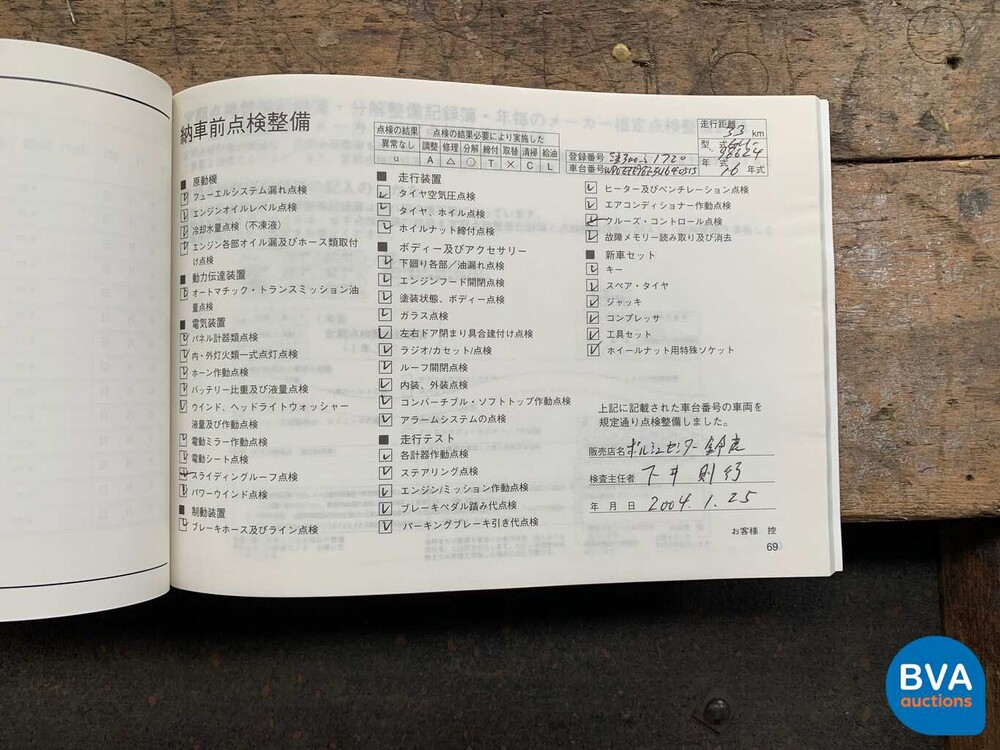 納車前点検整備
点検の結果 点検の結果必要により実施した
異常なし 調整 修理 分解 締付 取替 清掃 給油
レ A △ ○ T × C L
走行距離 33 km
型式 GH-98624
年式 16 年式
登録番号 1720
車台番号
■ 原動機
フューエルシステム漏れ点検
エンジンオイルレベル点検
冷却水量点検（不凍液）
エンジン各部オイル漏及びホース類取付
け点検
■ 動力伝達装置
オートマチック・トランスミッション油
量点検
■ 電気装置
パネル計器類点検
内・外灯火類一式点灯点検
ホーン作動点検
バッテリー比重及び液量点検
ウインド、ヘッドライトウォッシャー
液量及び作動点検
電動ミラー作動点検
電動シート点検
スライディングルーフ点検
パワーウインド点検
■ 制動装置
ブレーキホース及びライン点検
■ 走行装置
タイヤ空気圧点検
タイヤ、ホイル点検
ホイルナット締付点検
■ ボディー及びアクセサリー
下廻り各部／油漏れ点検
エンジンフード開閉点検
塗装状態、ボディー点検
ガラス点検
左右ドア閉まり具合建付け点検
ラジオ/カセット/点検
ルーフ開閉点検
内装、外装点検
コンバーチブル・ソフトトップ作動点検
アラームシステムの点検
■ 走行テスト
各計器作動点検
ステアリング点検
エンジン/ミッション作動点検
ブレーキペダル踏み代点検
パーキングブレーキ引き代点検
ヒーター及びベンチレーション点検
エアコンディショナー作動点検
クルーズ・コントロール点検
故障メモリー読み取り及び消去
■ 新車セット
キー
スペア・タイヤ
ジャッキ
コンプレッサ
工具セット
ホイールナット用特殊ソケット
上記に記載された車台番号の車両を
規定通り点検整備しました。
販売店名 ポルシェセンター鈴鹿
検査主任者
年 月 日 2004.1.25
お客様 控
69
BVA
auctions